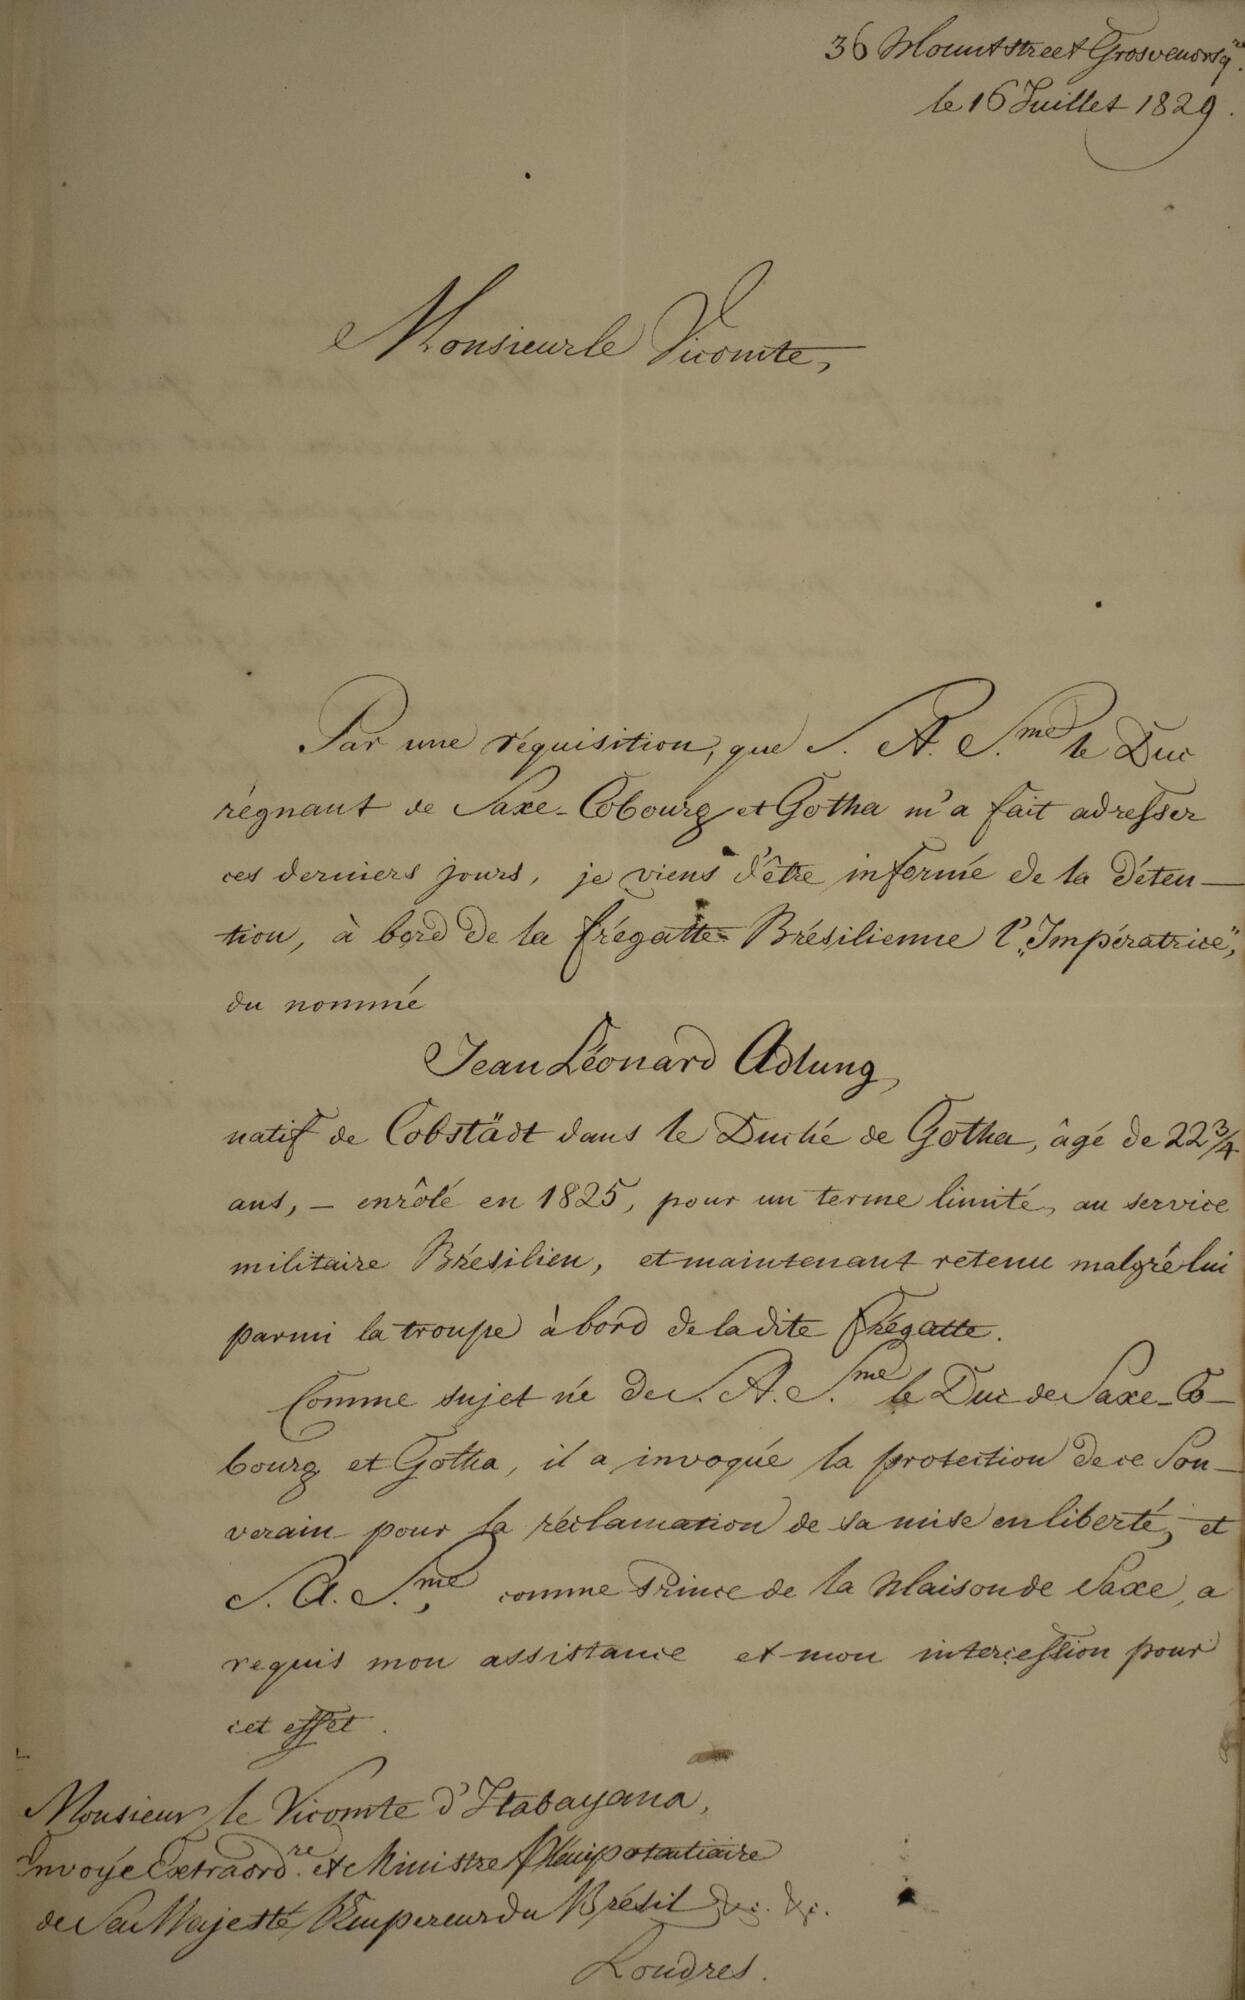 36 Mountstreet Grosvenorsq.re
le 16 Juillet 1829.
Monsieur le Vicomte,
Par une réquisition, que S. A. S.me le Duc
régnant de Saxe-Cobourg et Gotha m'a fait adresser
ces derniers jours, je viens d'être informé de la déten-
tion, à bord de la frégatte Brésilienne l'„Impératrice",
du nommé
Jean Léonard Adlung,
natif de Cobstädt dans le Duché de Gotha, âgé de 22 3/4
ans, – enrôlé en 1825, pour un terme limité, au service
militaire Brésilien, et maintenant retenu malgré lui
parmi la troupe à bord de la dite frégatte.
Comme sujet né de S. A. S.me le Duc de Saxe-Co-
bourg et Gotha, il a invoqué la protection de ce Sou-
verain pour la réclamation de sa mise en liberté, et
S. A. S.me, comme Prince de la Maison de Saxe, a
requis mon assistance et mon intercession pour
cet effet.
Monsieur le Vicomte d'Itabayana,
Envoyé Extraord.re et Ministre Plénipotentiaire
de Sa Majesté l'Empereur du Brésil &c. &c.
Londres.